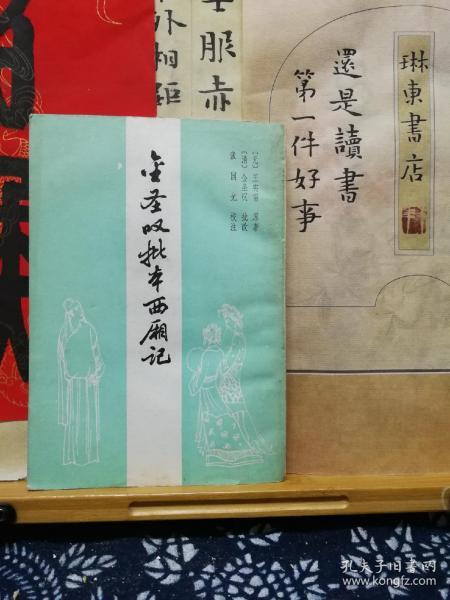 金圣叹批本西厢记
〔元〕王实甫 原著
〔清〕金圣叹 批改
张国光 校注
服赤
外相距
還是讀書
第一件好事
琳東書店
孔夫子旧书网
www.kongfz.com